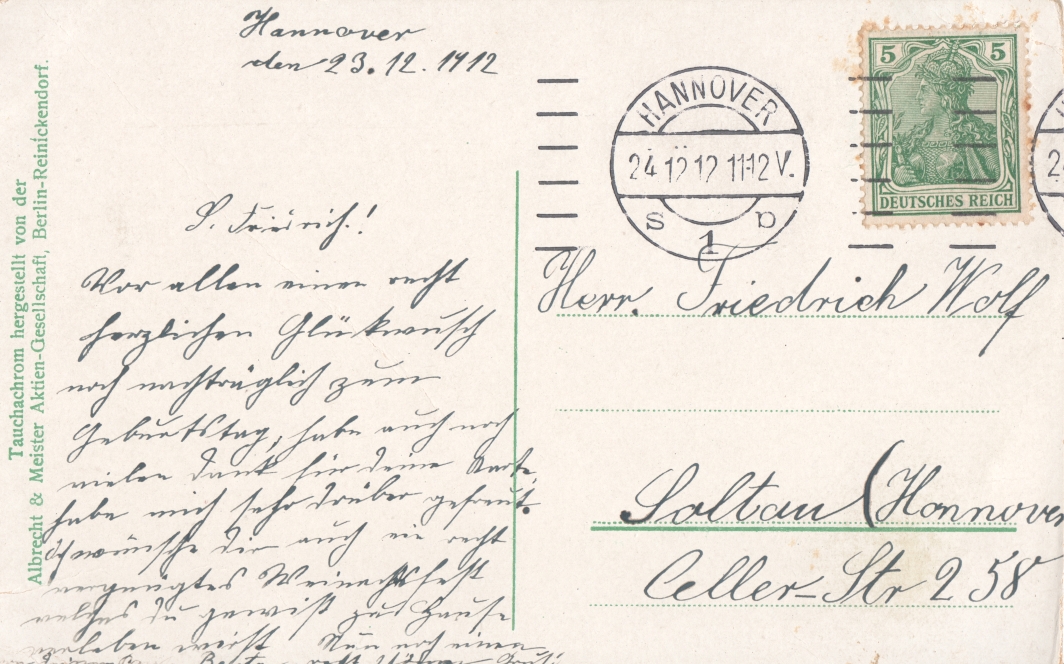 Hannover
den 23.12.1912
L. Friedrich!
Vor allen einen recht
herzlichen Glückwusch
noch nachträglich zum
Geburtstag, habe auch noch
vielen Dank für deine Karte,
habe mich sehr drüber gefreut.
Ich wünsche dir auch ein recht
vergnügtes Weinachtsfest
welches du gewiß zu Hause
verleben wirst Nun noch einen
Tauchachrom hergestellt von der
Albrecht & Meister Aktien-Gesellschaft, Berlin-Reinickendorf.
HANNOVER
24 12 12 11-12 V.
S 1 b
5 5
DEUTSCHES REICH
Herr. Friedrich Wolf
Soltau (Hannover
Celler-Str 258